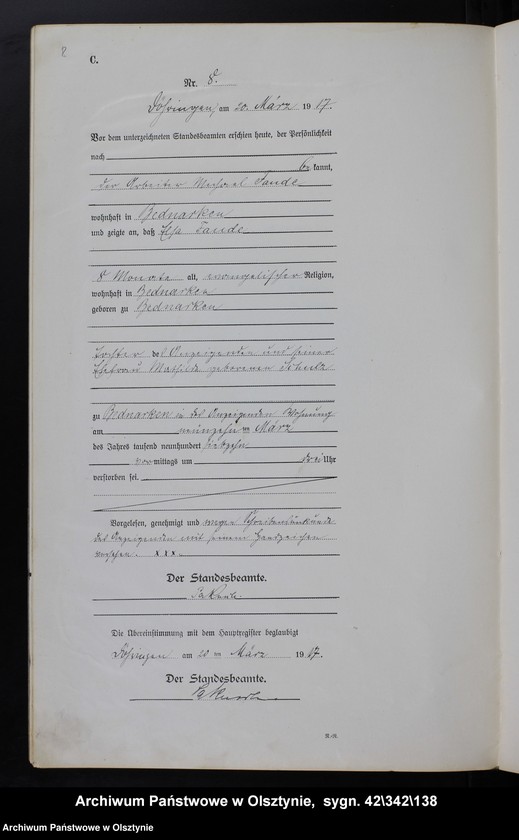 C.
Nr. 8.
Döhringen, am 20. März 1917.
Vor dem unterzeichneten Standesbeamten erschien heute, der Persönlichkeit
nach
be kannt,
der Arbeiter Michael Taude
wohnhaft in Bednarken
und zeigte an, daß Elsa Taude
8 Monate alt, evangelischer Religion,
wohnhaft in Bednarken
geboren zu Bednarken
Tochter des Anzeigenden und seiner
Ehefrau Mathilde geborenen Schulz
zu Bednarken in des Anzeigenden Wohnung
am neunzehn ten März
des Jahres tausend neunhundert siebzehn
vor mittags um drei Uhr
verstorben sei.
Vorgelesen, genehmigt und wegen Schreibensunkunde
des Anzeigenden mit seinem Handzeichen
versehen. x x x
Der Standesbeamte.
Die Übereinstimmung mit dem Hauptregister beglaubigt
Döhringen am 20 ten März 1917.
Der Standesbeamte.
Archiwum Państwowe w Olsztynie, sygn. 42\342\138
Archiwum Państwowe w Olsztynie